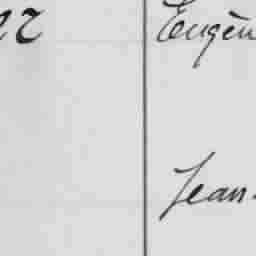 Eugèn
Jean-